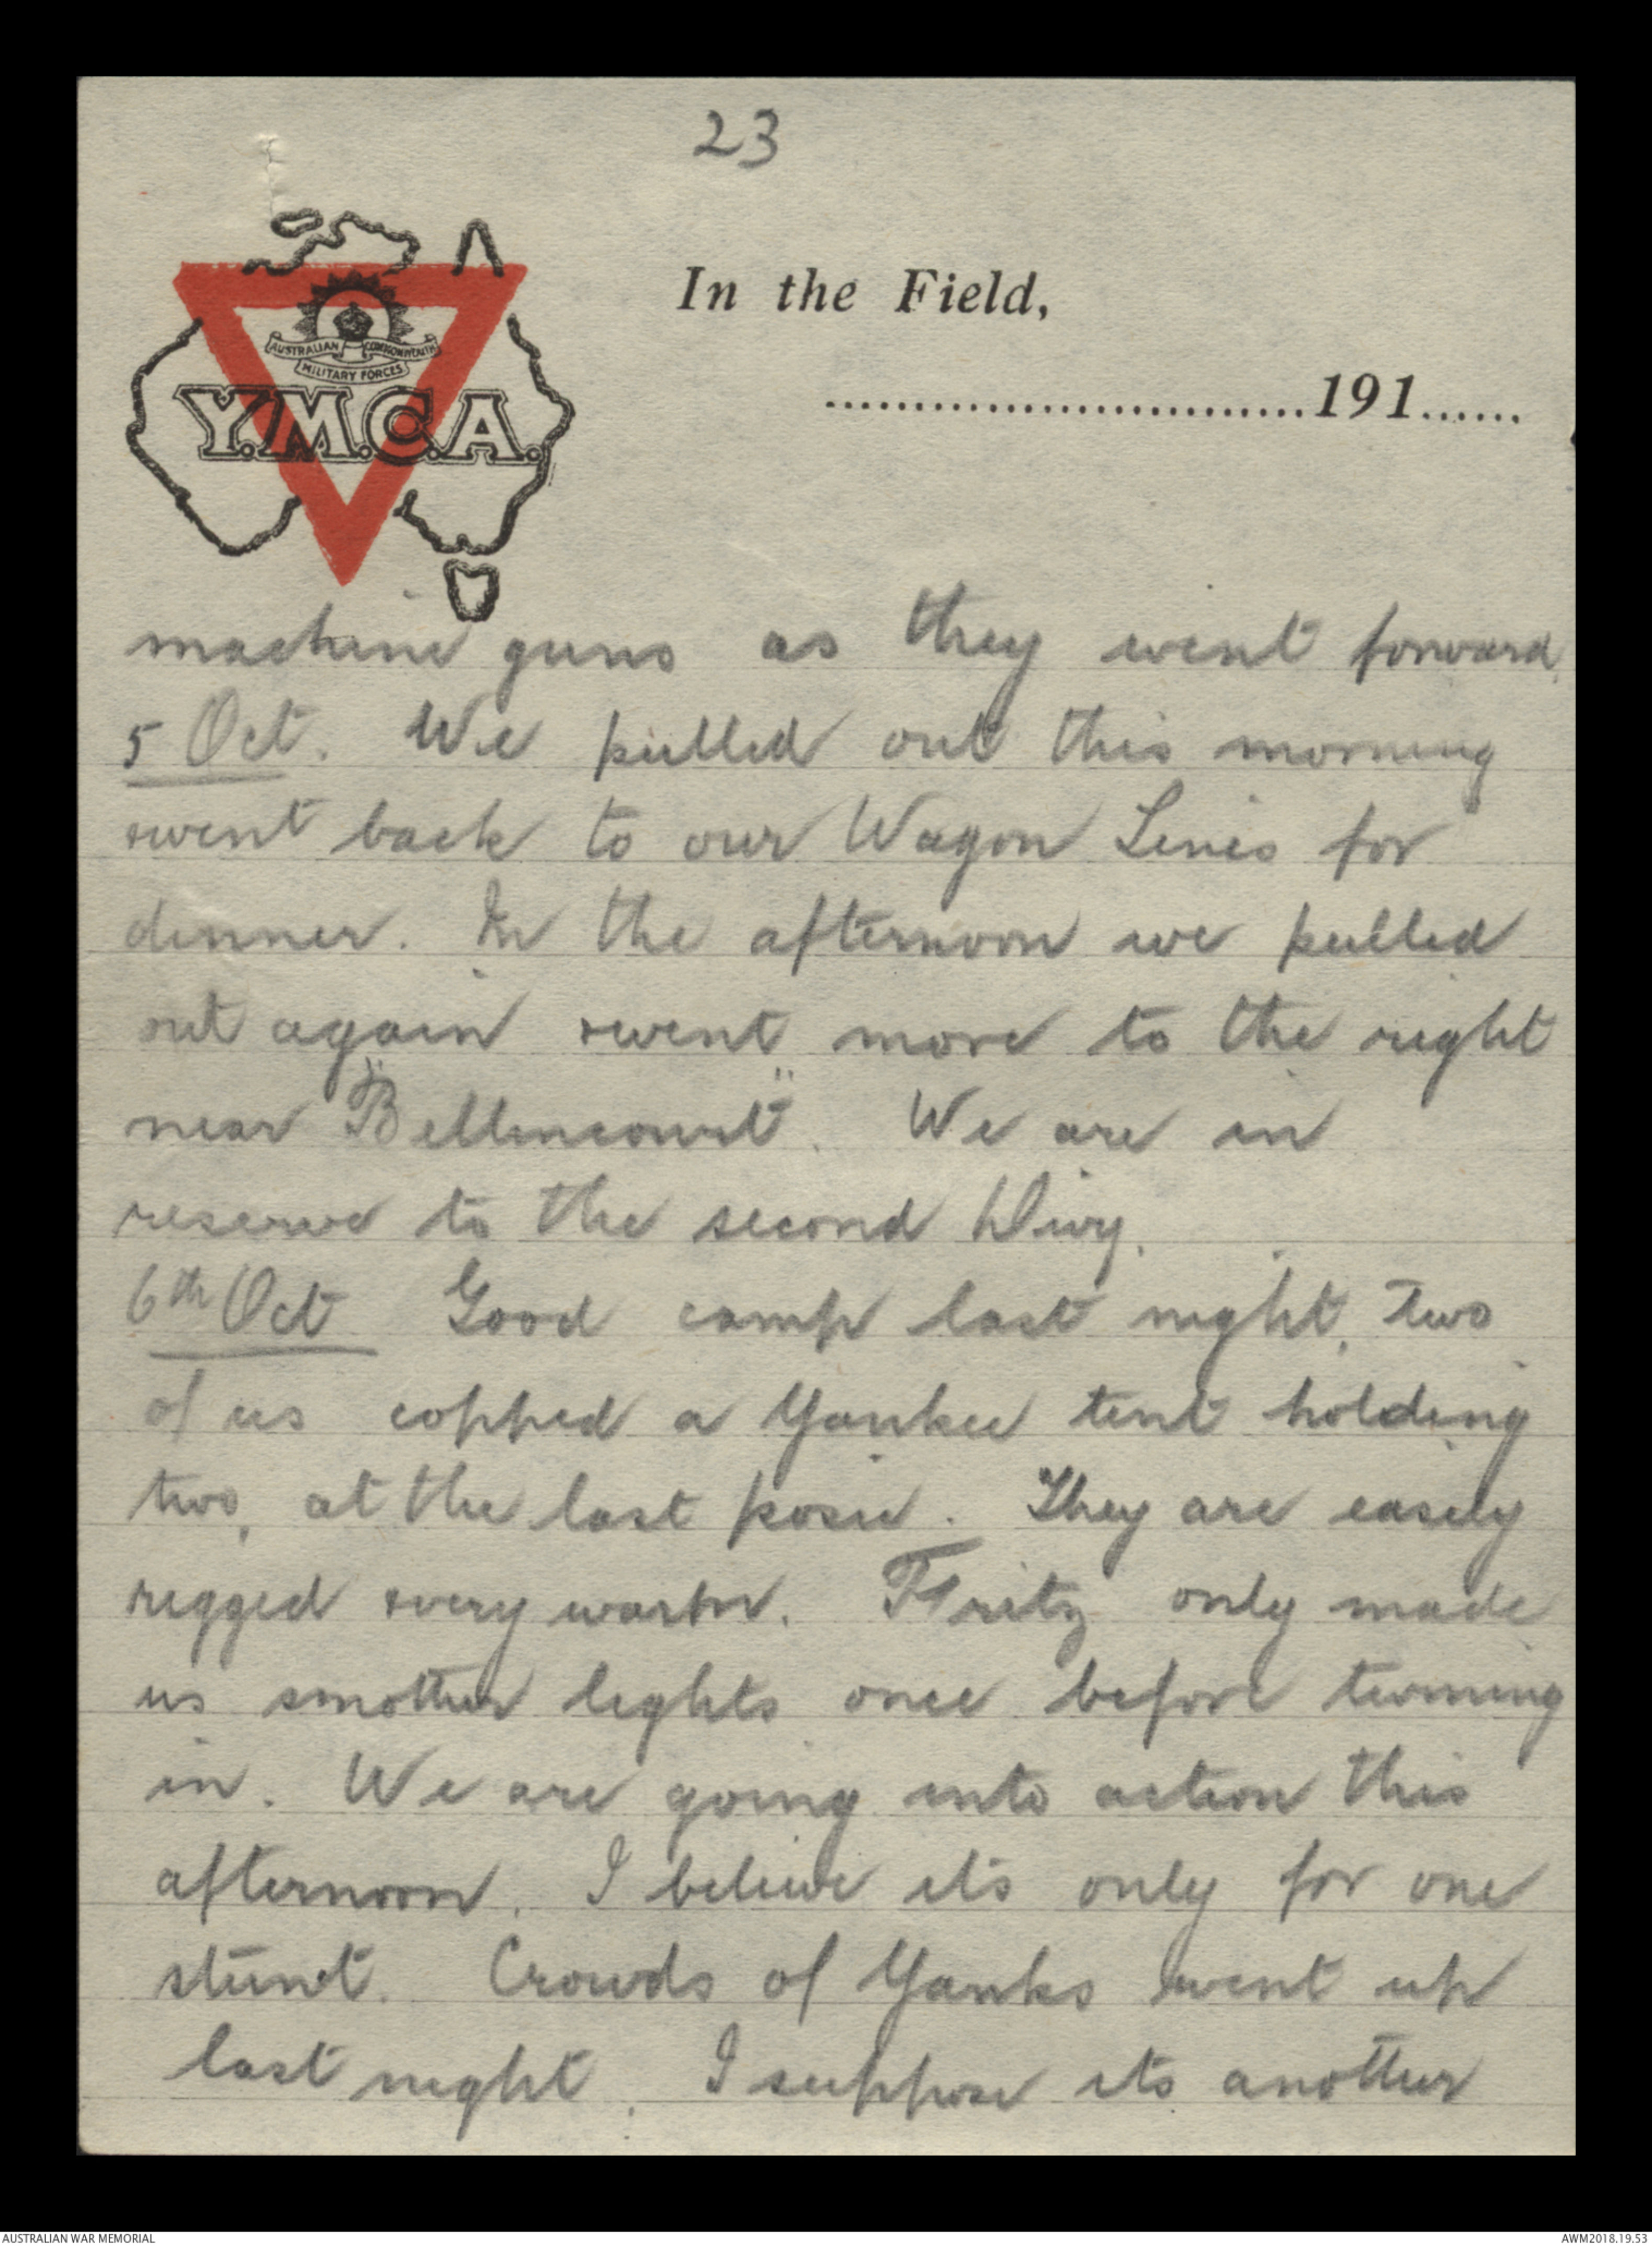 23
AUSTRALIAN COMMONWEALTH
MILITARY FORCES
Y.M.C.A.
In the Field,
..............................191......
machine guns as they went forward.
5 Oct. We pulled out this morning
& went back to our Wagon Lines for
dinner. In the afternoon we pulled
out again & went more to the right
near "Bellincourt". We are in
reserve to the second Divy.
6th Oct Good camp last night, two
of us copped a Yankee tent holding
two, at the last posie. They are easily
rigged & very warm. Fritz only made
us smother lights once before turning
in. We are going into action this
afternoon. I believe it's only for one
stunt. Crowds of Yanks went up
last night. I suppose its another
AUSTRALIAN WAR MEMORIAL
AWM2018.19.53